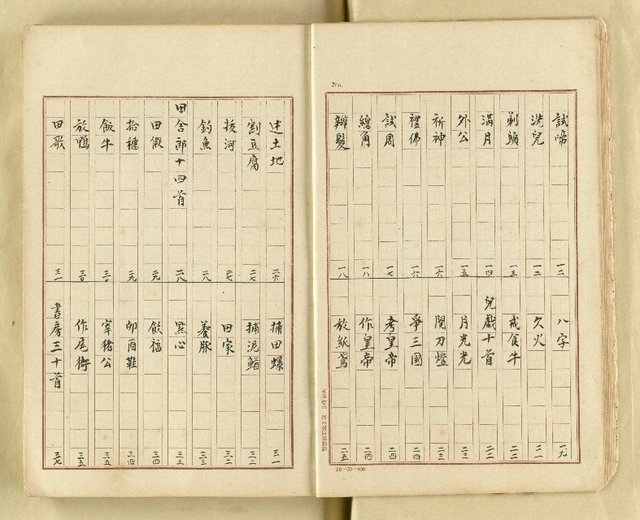 No.
試啼 一二
洗兒 一二
剃頭 一三
滿月 一四
外公 一五
祈神 一六
禮佛 一六
試周 一七
總角 一八
辮髮 一八
八字 一九
欠火 二一
戒食牛 二二
兒戲十首 二二
月光光 二三
關刀燈 二三
爭三國 二四
考皇帝 二四
作皇帝 二四
放紙鳶 二五
20-20-400
迓土地 二六
割豆腐 二七
拔河 二七
釣魚 二八
田舍郎十四首 二八
田假 二九
拾穗 二九
飯牛 三〇
放鴨 三〇
田歌 三一
捕田螺 三一
捕泥鰌 三二
田家 三二
養豚 三三
點心 三三
飲福 三四
卯酉鞋 三四
宰豬公 三五
作尾衙 三五
書房三十首 三七